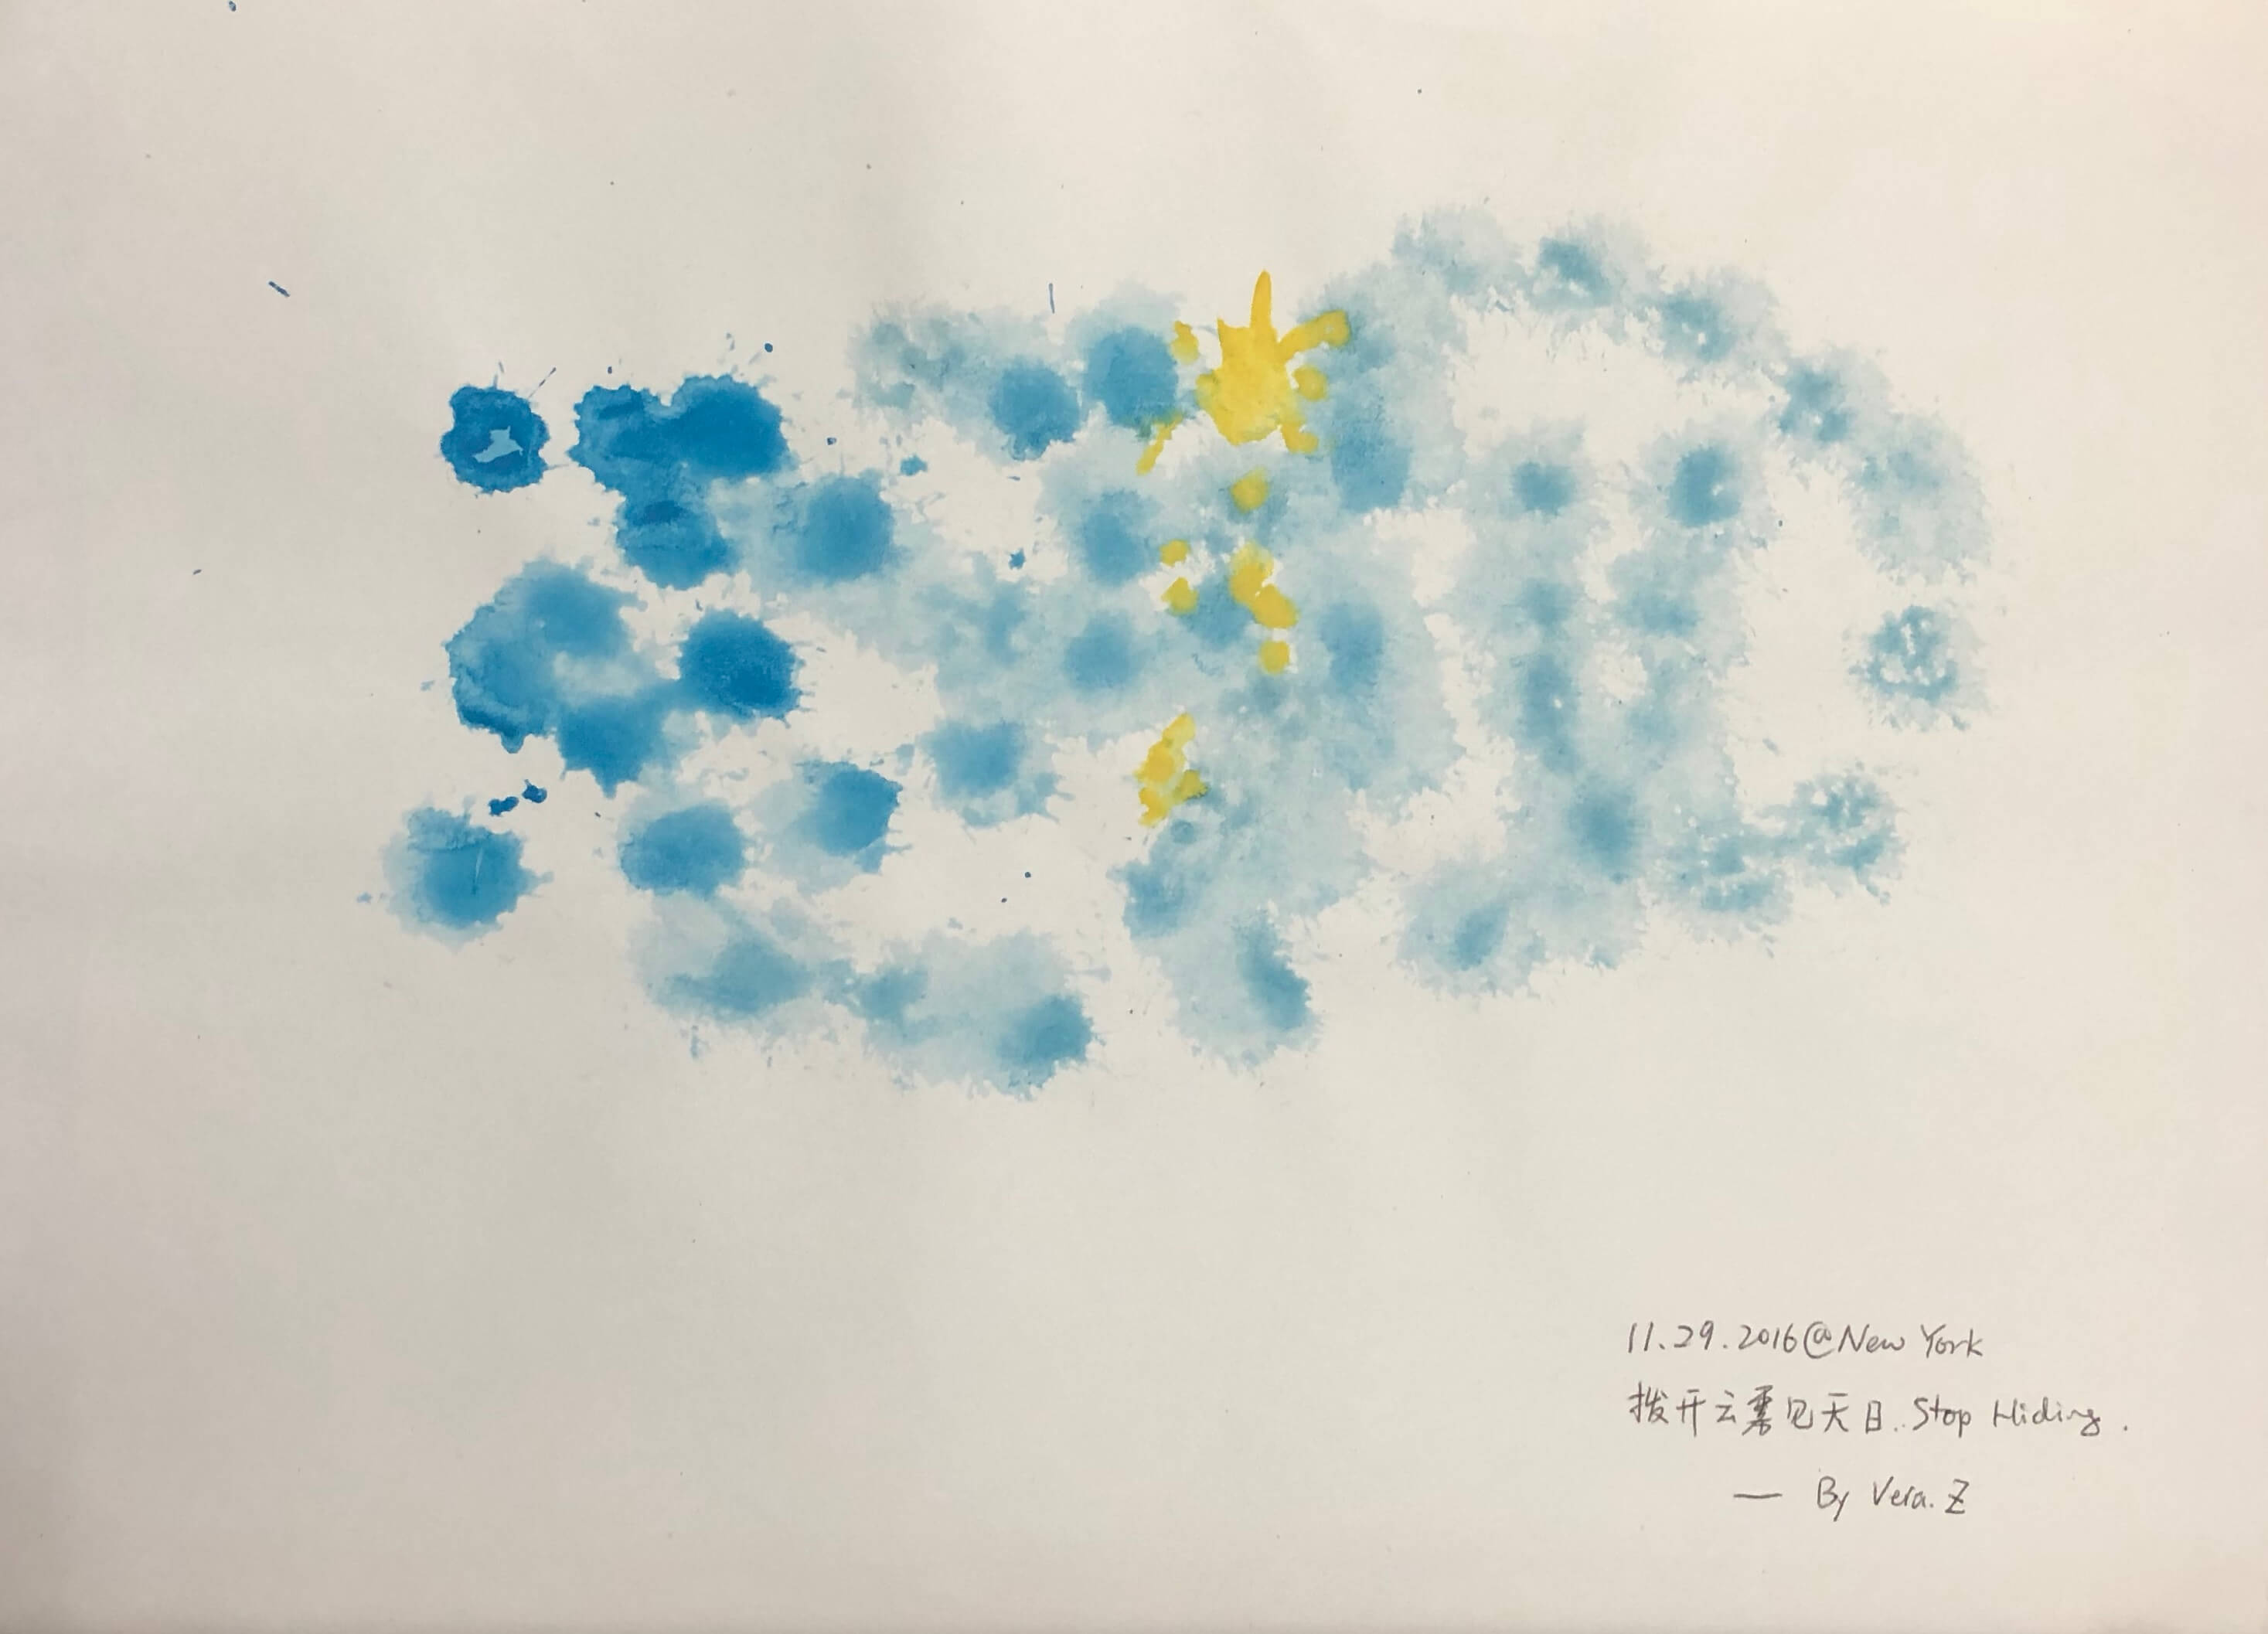 11.29.2016@New York
拨开云雾见天日. Stop Hiding.
— By Vera. Z